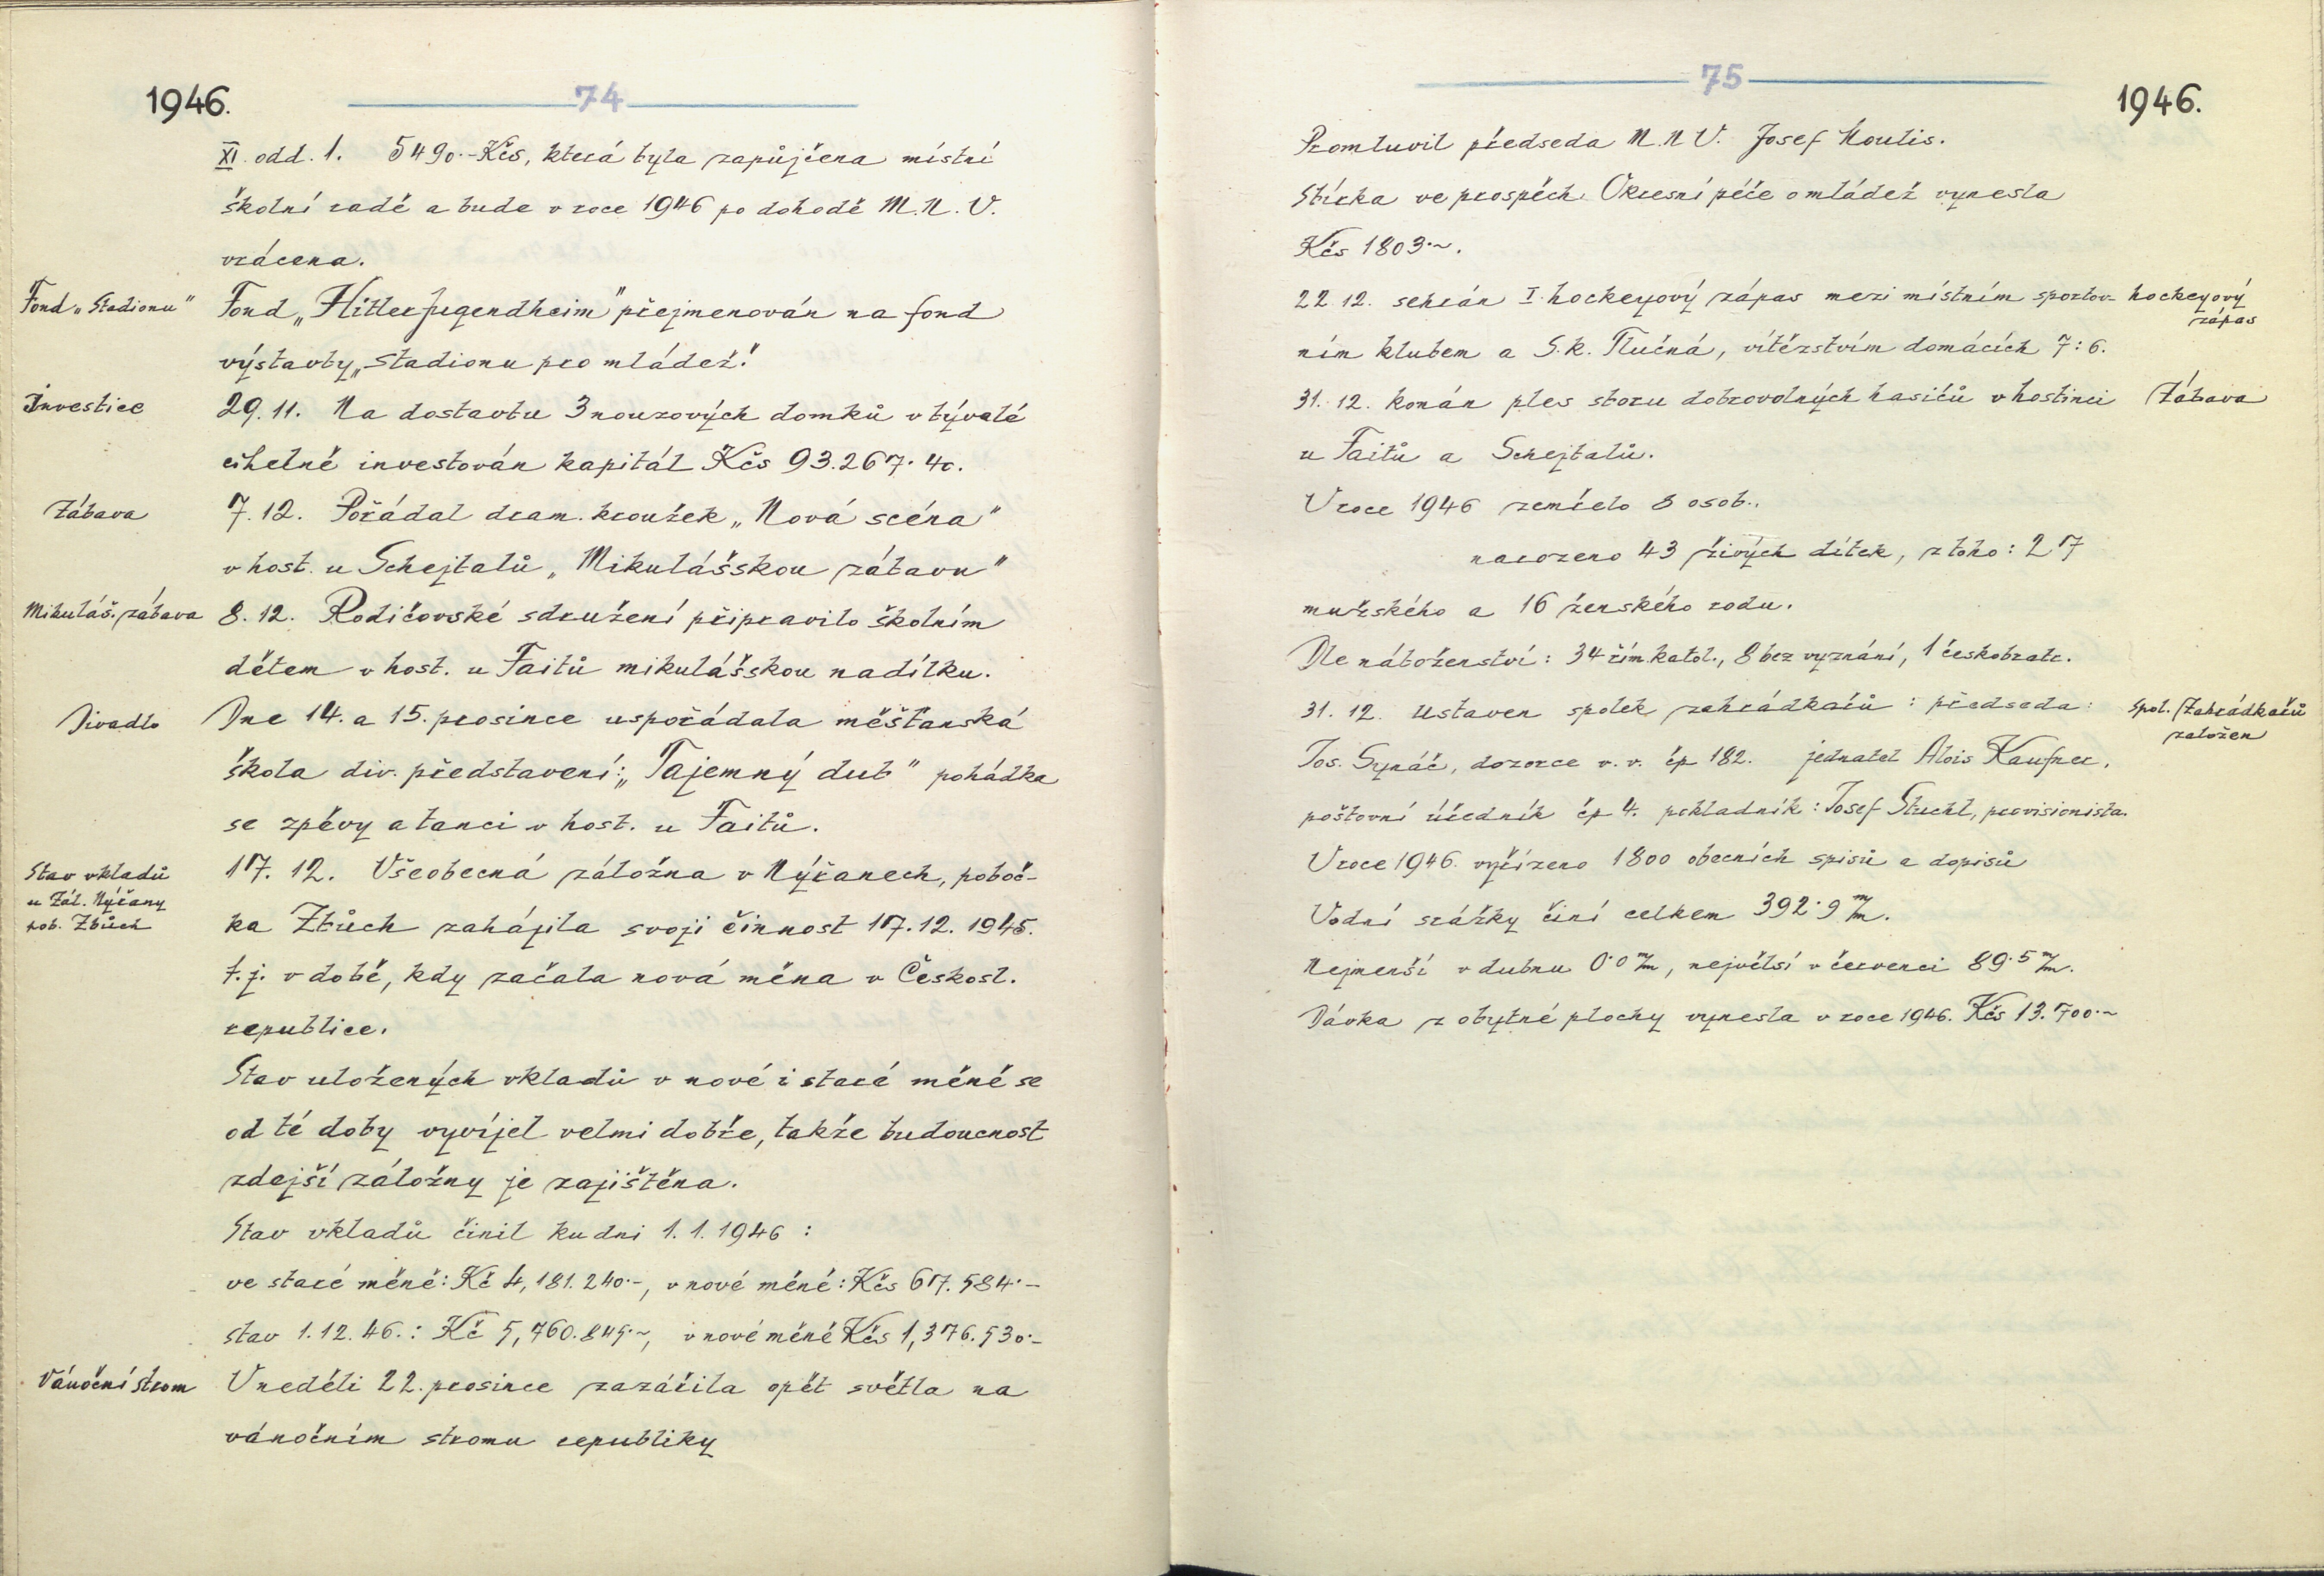 1946.
74
XI. odd. 1. 5490.-Kčs, která byla zapůjčena místní
školní radě a bude v roce 1946 po dohodě M.N.V.
vrácena.
Fond „Stadionu"
Fond „Hitlerjugendheim" přejmenován na fond
výstavby „Stadionu pro mládež."
Investice
29.11. Na dostavbu 3 nouzových domků v bývalé
cihelně investován kapitál Kčs 93.267.40.
Zábava
7.12. Pořádal dram. kroužek „Nová scéna"
v host. u Schejtalů „Mikulášskou zábavu"
Mikuláš. zábava
8.12. Rodičovské sdružení připravilo školním
dětem v host. u Faitů mikulášskou nadílku.
Divadlo
Dne 14. a 15. prosince uspořádala měšťanská
škola div. představení: „Tajemný dub" pohádka
se zpěvy a tanci v host. u Faitů.
Stav vkladů
u Zál. Nýřany
pob. Zbůch
17.12. Všeobecná záložna v Nýřanech, poboč-
ka Zbůch zahájila svoji činnost 17.12. 1945.
t.j. v době, kdy začala nová měna v Českosl.
republice.
Stav uložených vkladů v nové i staré měně se
od té doby vyvíjel velmi dobře, takže budoucnost
zdejší záložny je zajištěna.
Stav vkladů činil ku dni 1.1.1946 :
ve staré měně: Kč 4,181.240·-, v nové měně: Kčs 617.584·-
stav 1.12.46.: Kč 5,760.845·~, v nové měně Kčs 1,376.530·-
Vánoční strom
V neděli 22. prosince zazářila opět světla na
vánočním stromu republiky
75
1946.
Promluvil předseda M.N.V. Josef Moulis.
Sbírka ve prospěch Okresní péče o mládež vynesla
Kčs 1803·~.
22.12. sehrán I. hockeyový zápas mezi místním sportov-
hockeyový
zápas
ním klubem a S.k. Tlučná, vítězstvím domácích 7:6.
31.12. konán ples sboru dobrovolných hasičů v hostinci
Zábava
u Faitů a Schejtalů.
V roce 1946 zemřelo 8 osob.,
narozeno 43 živých dítek, z toho: 27
mužského a 16 ženského rodu.
Dle náboženství: 34 řím.katol., 8 bez vyznání, 1 českobratr.
31.12. Ustaven spolek zahrádkářů : předseda:
Spol. Zahrádkářů
založen
Jos. Synáč, dozorce v.v. čp 182. jednatel Alois Kaufner,
poštovní úředník čp 4. pokladník: Josef Stuchl, provisionista.
V roce 1946. vyřízeno 1800 obecních spisů a dopisů
Vodní srážky činí celkem 392·9 m/m.
Nejmenší v dubnu 0·0 m/m, největší v červenci 89·5 m/m.
Dávka z obytné plochy vynesla v roce 1946. Kčs 13.700·~